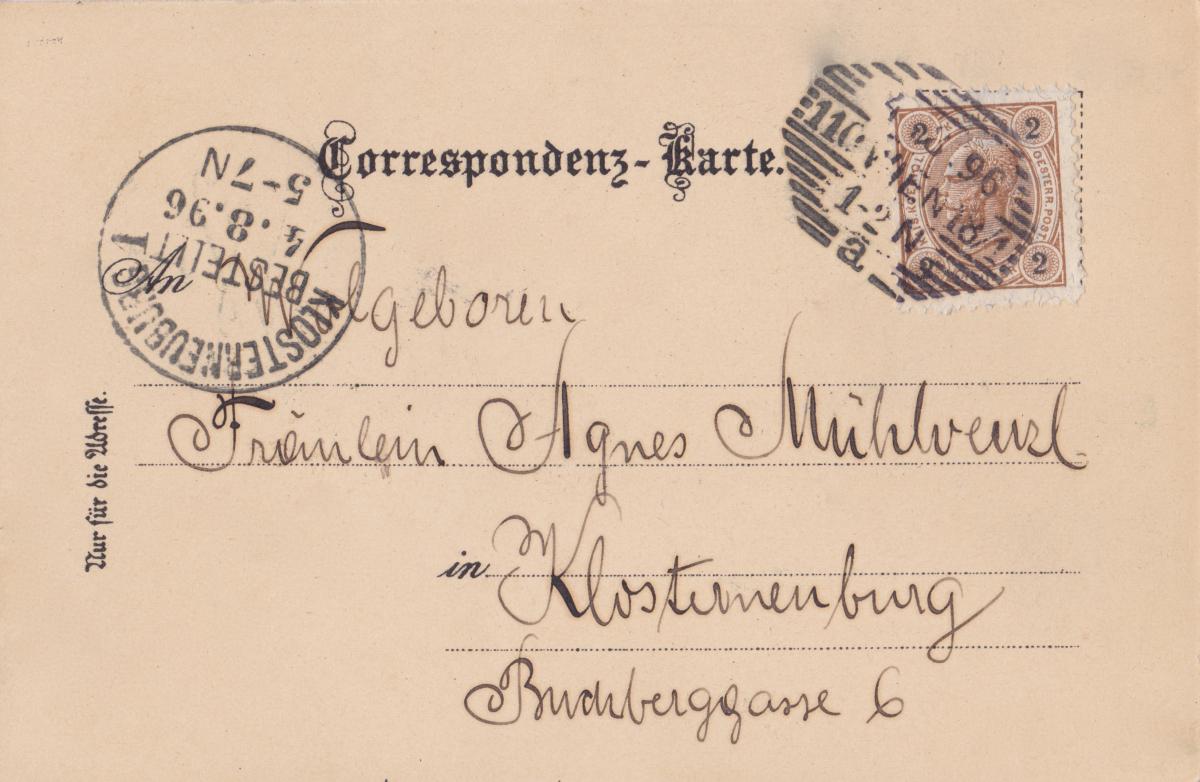 Correspondenz-Karte.
An Wohlgeboren
Fräulein Agnes Mühlvenzl
in Klosterneuburg
Buchberggasse 6
Nur für die Adresse.
KLOSTERNEUBURG 1
BESTELLT
4.8.96
5-7N
110 WIEN 18/1
96
1-2 N
a
2
2
2
2
OESTERR. POST.